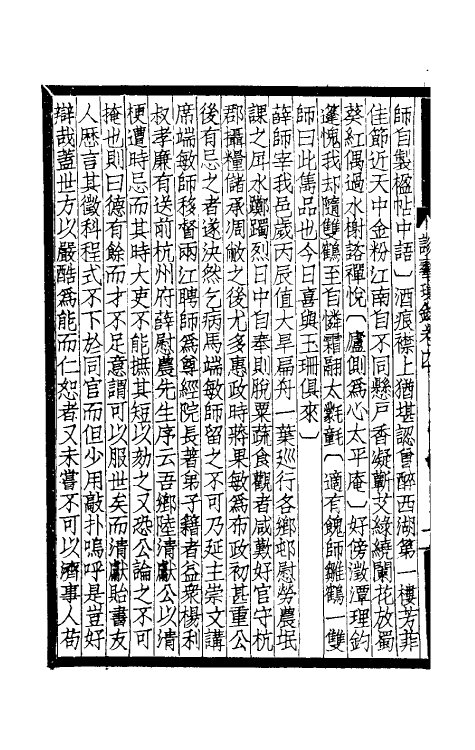 師自製楹帖中語〕酒痕襟上猶堪認曾醉西湖第一樓芳菲
佳節近天中金粉江南自不同懸戸香凝蘄艾綠繞闌花放蜀
葵紅偶過水榭諮禪悅〔廬側爲心太平庵〕好傍澂潭理釣
篷愧我却隨雙鶴至自憐霜翮太氋氃〔適有餽師雛鶴一雙
師曰此雋品也今日喜與玉珊俱來〕
薛師宰我邑歲丙辰值大旱扁舟一葉巡行各鄉邨慰勞農氓
課之戽水躑躅烈日中自奉則脫粟蔬食觀者咸歎好官守杭
郡攝糧儲承凋敝之後尤多惠政時蔣果敏爲布政初甚重公
後有忌之者遂決然乞病馬端敏師留之不可乃延主崇文講
席端敏師移督兩江聘師爲尊經院長著弟子籍者益衆楊利
叔孝廉有送前杭州府薛慰農先生序云吾鄉陸清獻公以清
便遭時忌而其時大吏不能摭其短以劾之又恐公論之不可
掩也則曰德有餘而才不足意謂可以服世矣而清獻貽書友
人歷言其徵科程式不下於同官而但少用敲扑嗚呼是豈好
辯哉蓋世方以嚴酷爲能而仁恕者又未嘗不可以濟事人苟